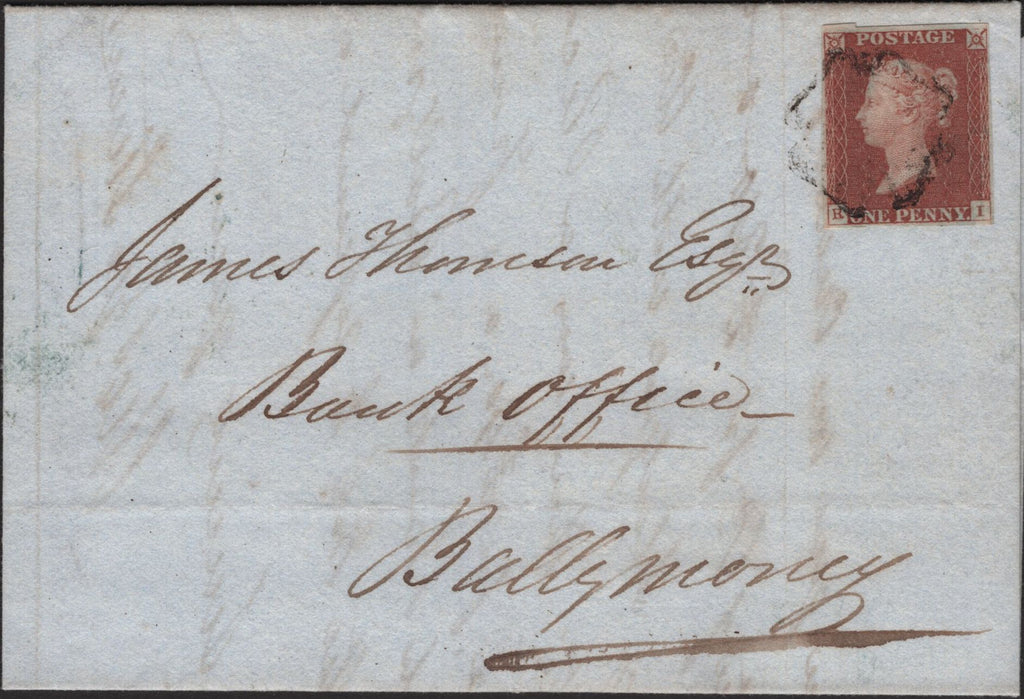 POSTAGE
R ONE PENNY I
James Thomson Esqr
Bank Office
Ballymoney